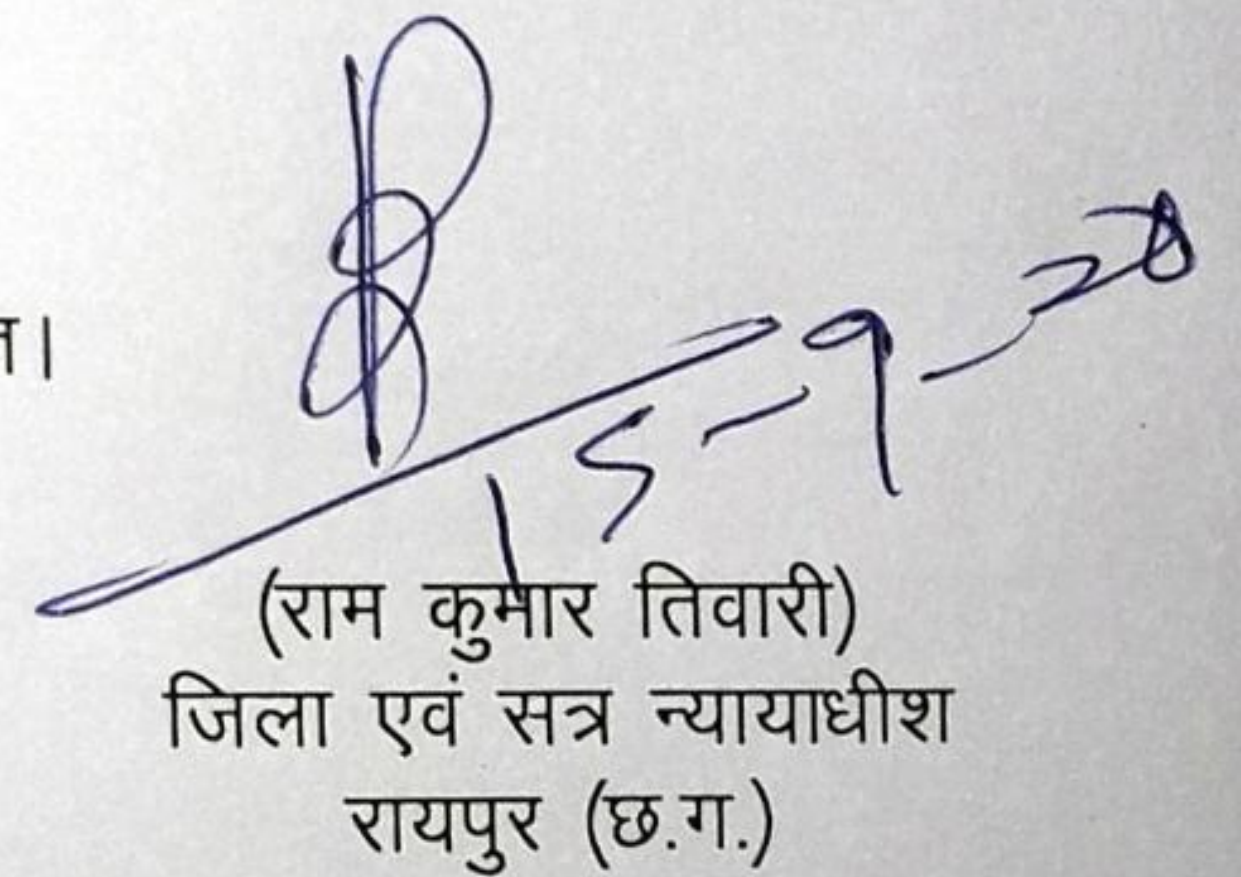 त।
15-9-20
(राम कुमार तिवारी)
जिला एवं सत्र न्यायाधीश
रायपुर (छ.ग.)